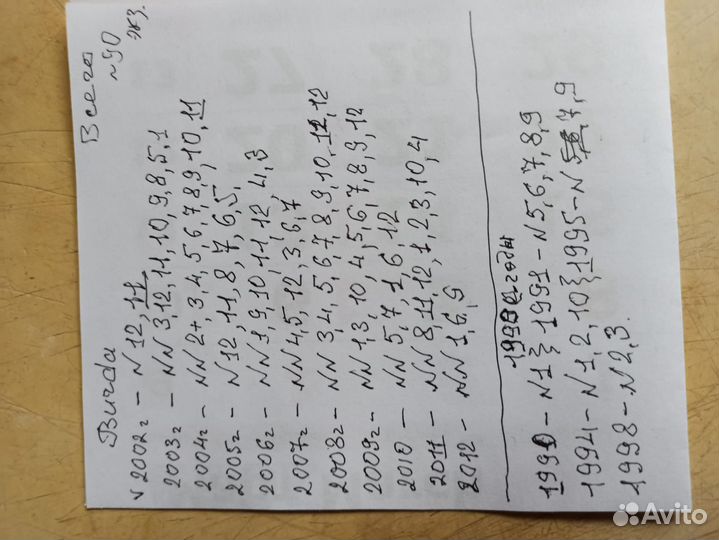 Burda Всего ~90 экз.
√ 2002г - N 12, 11
2003г - NN 3,12,11,10,9,8,5,1
2004г - NN 2+,3,4,5,6,7,8,9,10,11
2005г - N12,11,8,7,6,5,
2006г - NN1,9,10,11,12,4,3
2007г - NN4,5,12,3,6,7
2008г - NN 3,4,5,6,7,8,9,10,11,12
2009г - NN 1,3,10,4,5,6,7,8,9,12
2010 - NN 5,7,1,6,12
2011 - NN 8,11,12,1,2,3,10,4
2012 - NN 1,6,9
годы
1990 - N1} 1991 - N5,6,7,8,9
1994 - N1,2,10} 1995 - N 7,9
1998 - N2,3.
Avito